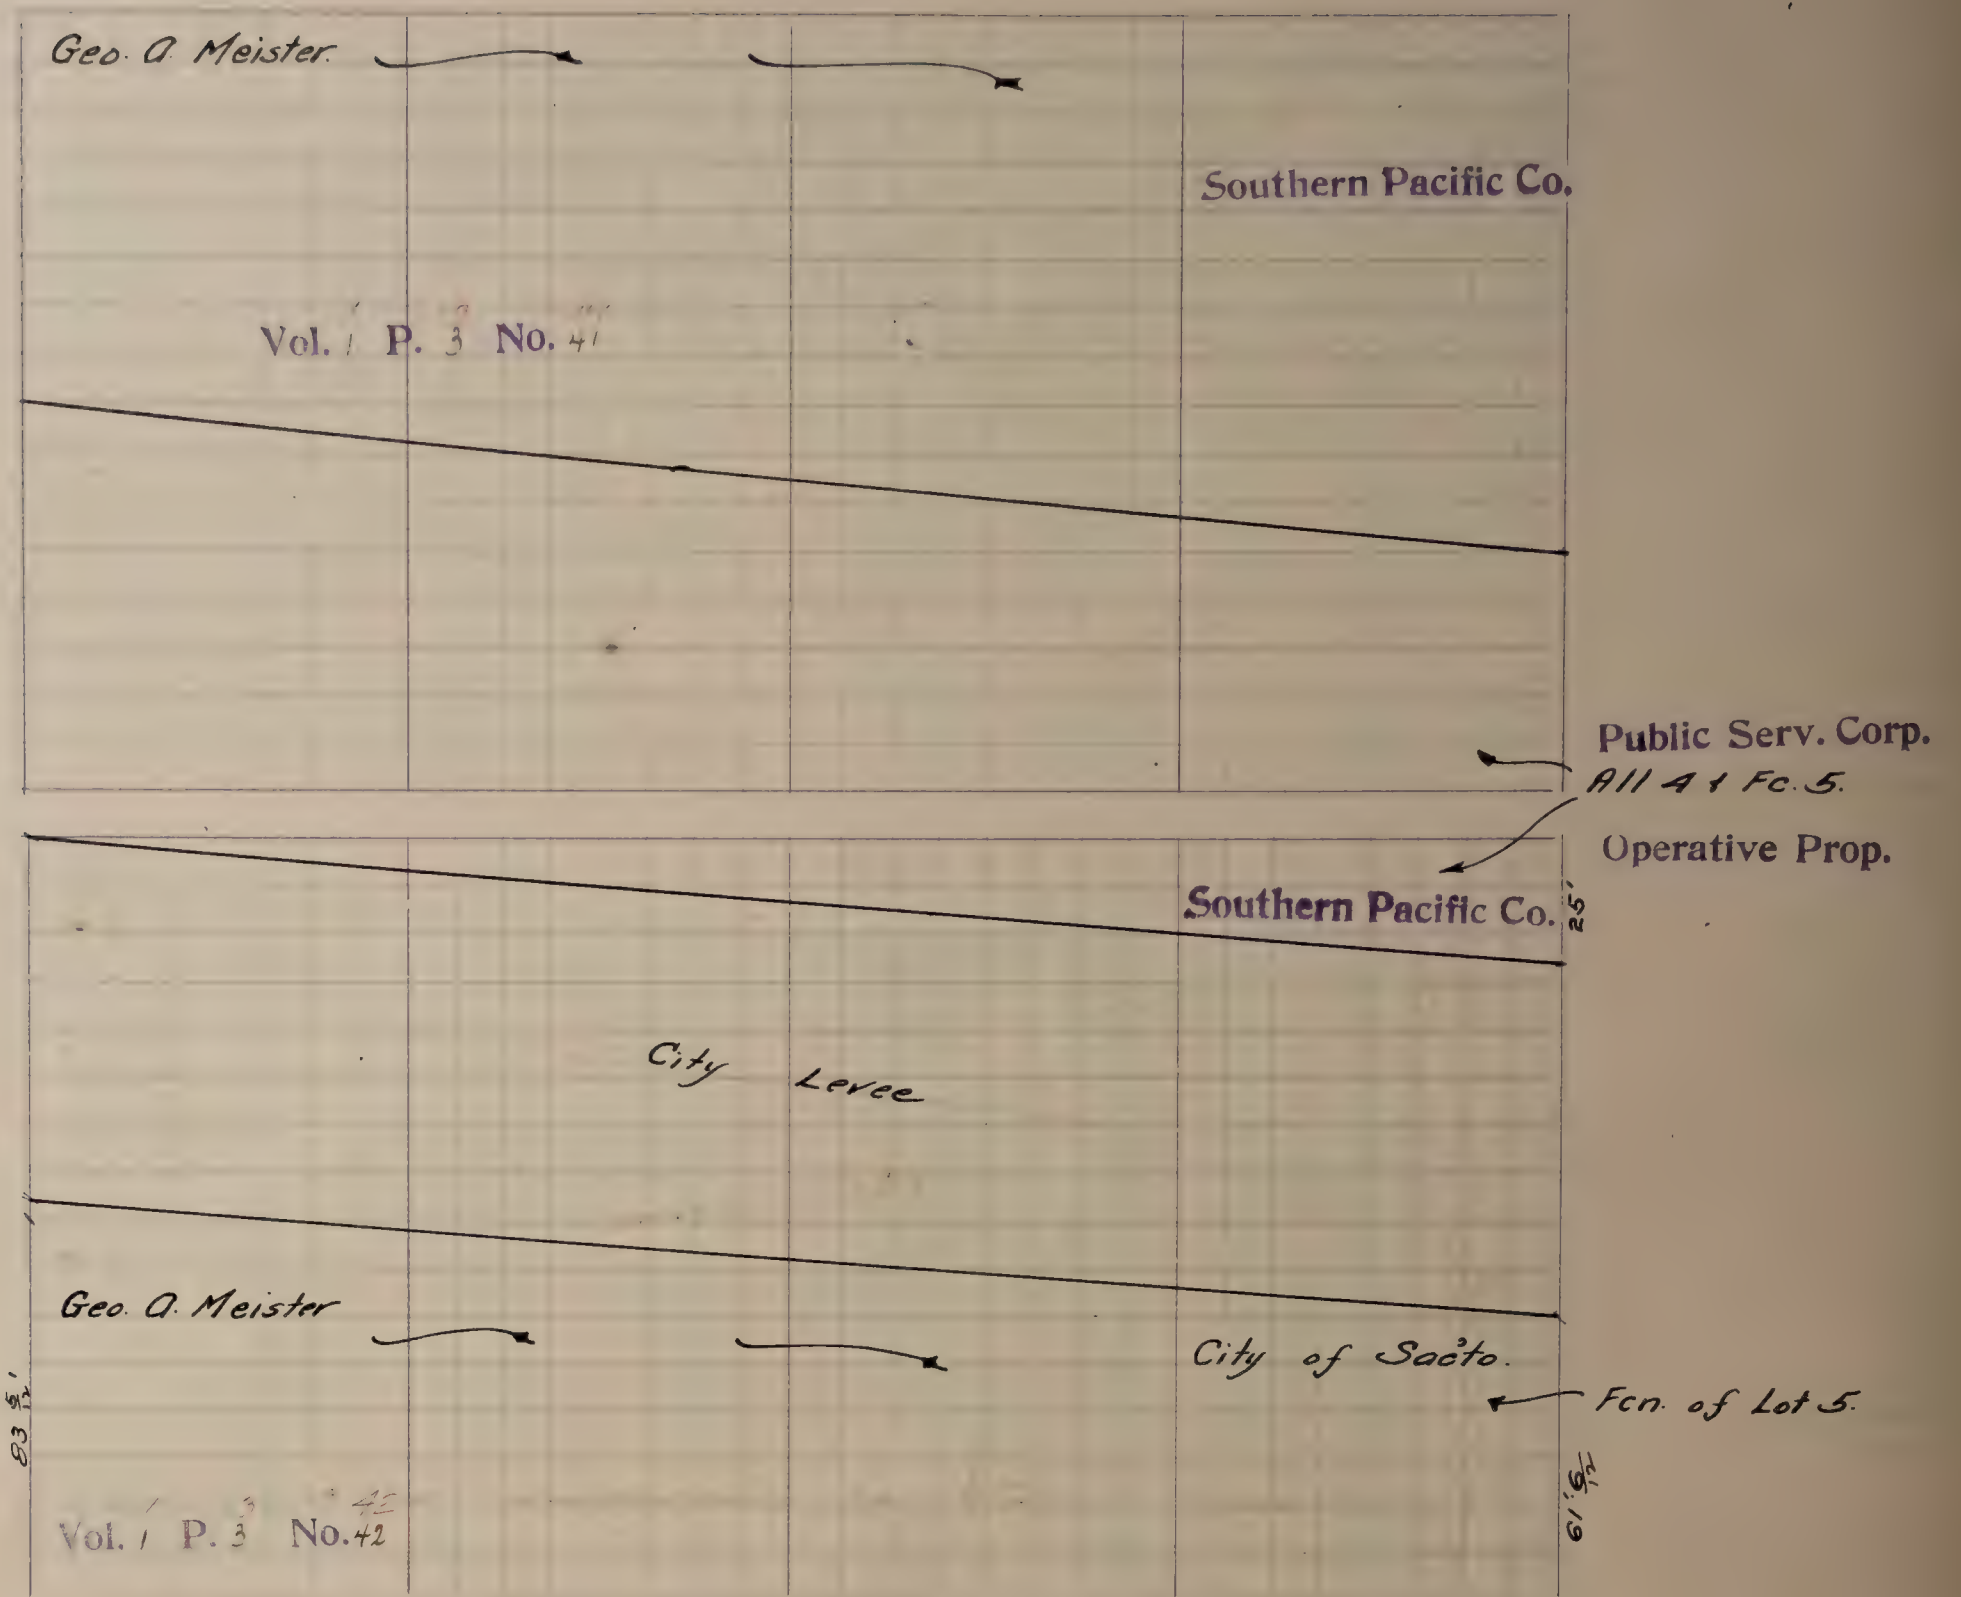 Geo. A. Meister.
Southern Pacific Co.
Vol. 1 P. 3 No. 41
Public Serv. Corp.
All 4 & Fc. 5.
Operative Prop.
Southern Pacific Co.
25'
City Levee
Geo. A. Meister
City of Sac'to.
Fcn. of Lot 5.
83 5/12'
61' 6/12
Vol. 1 P. 3 No. 42